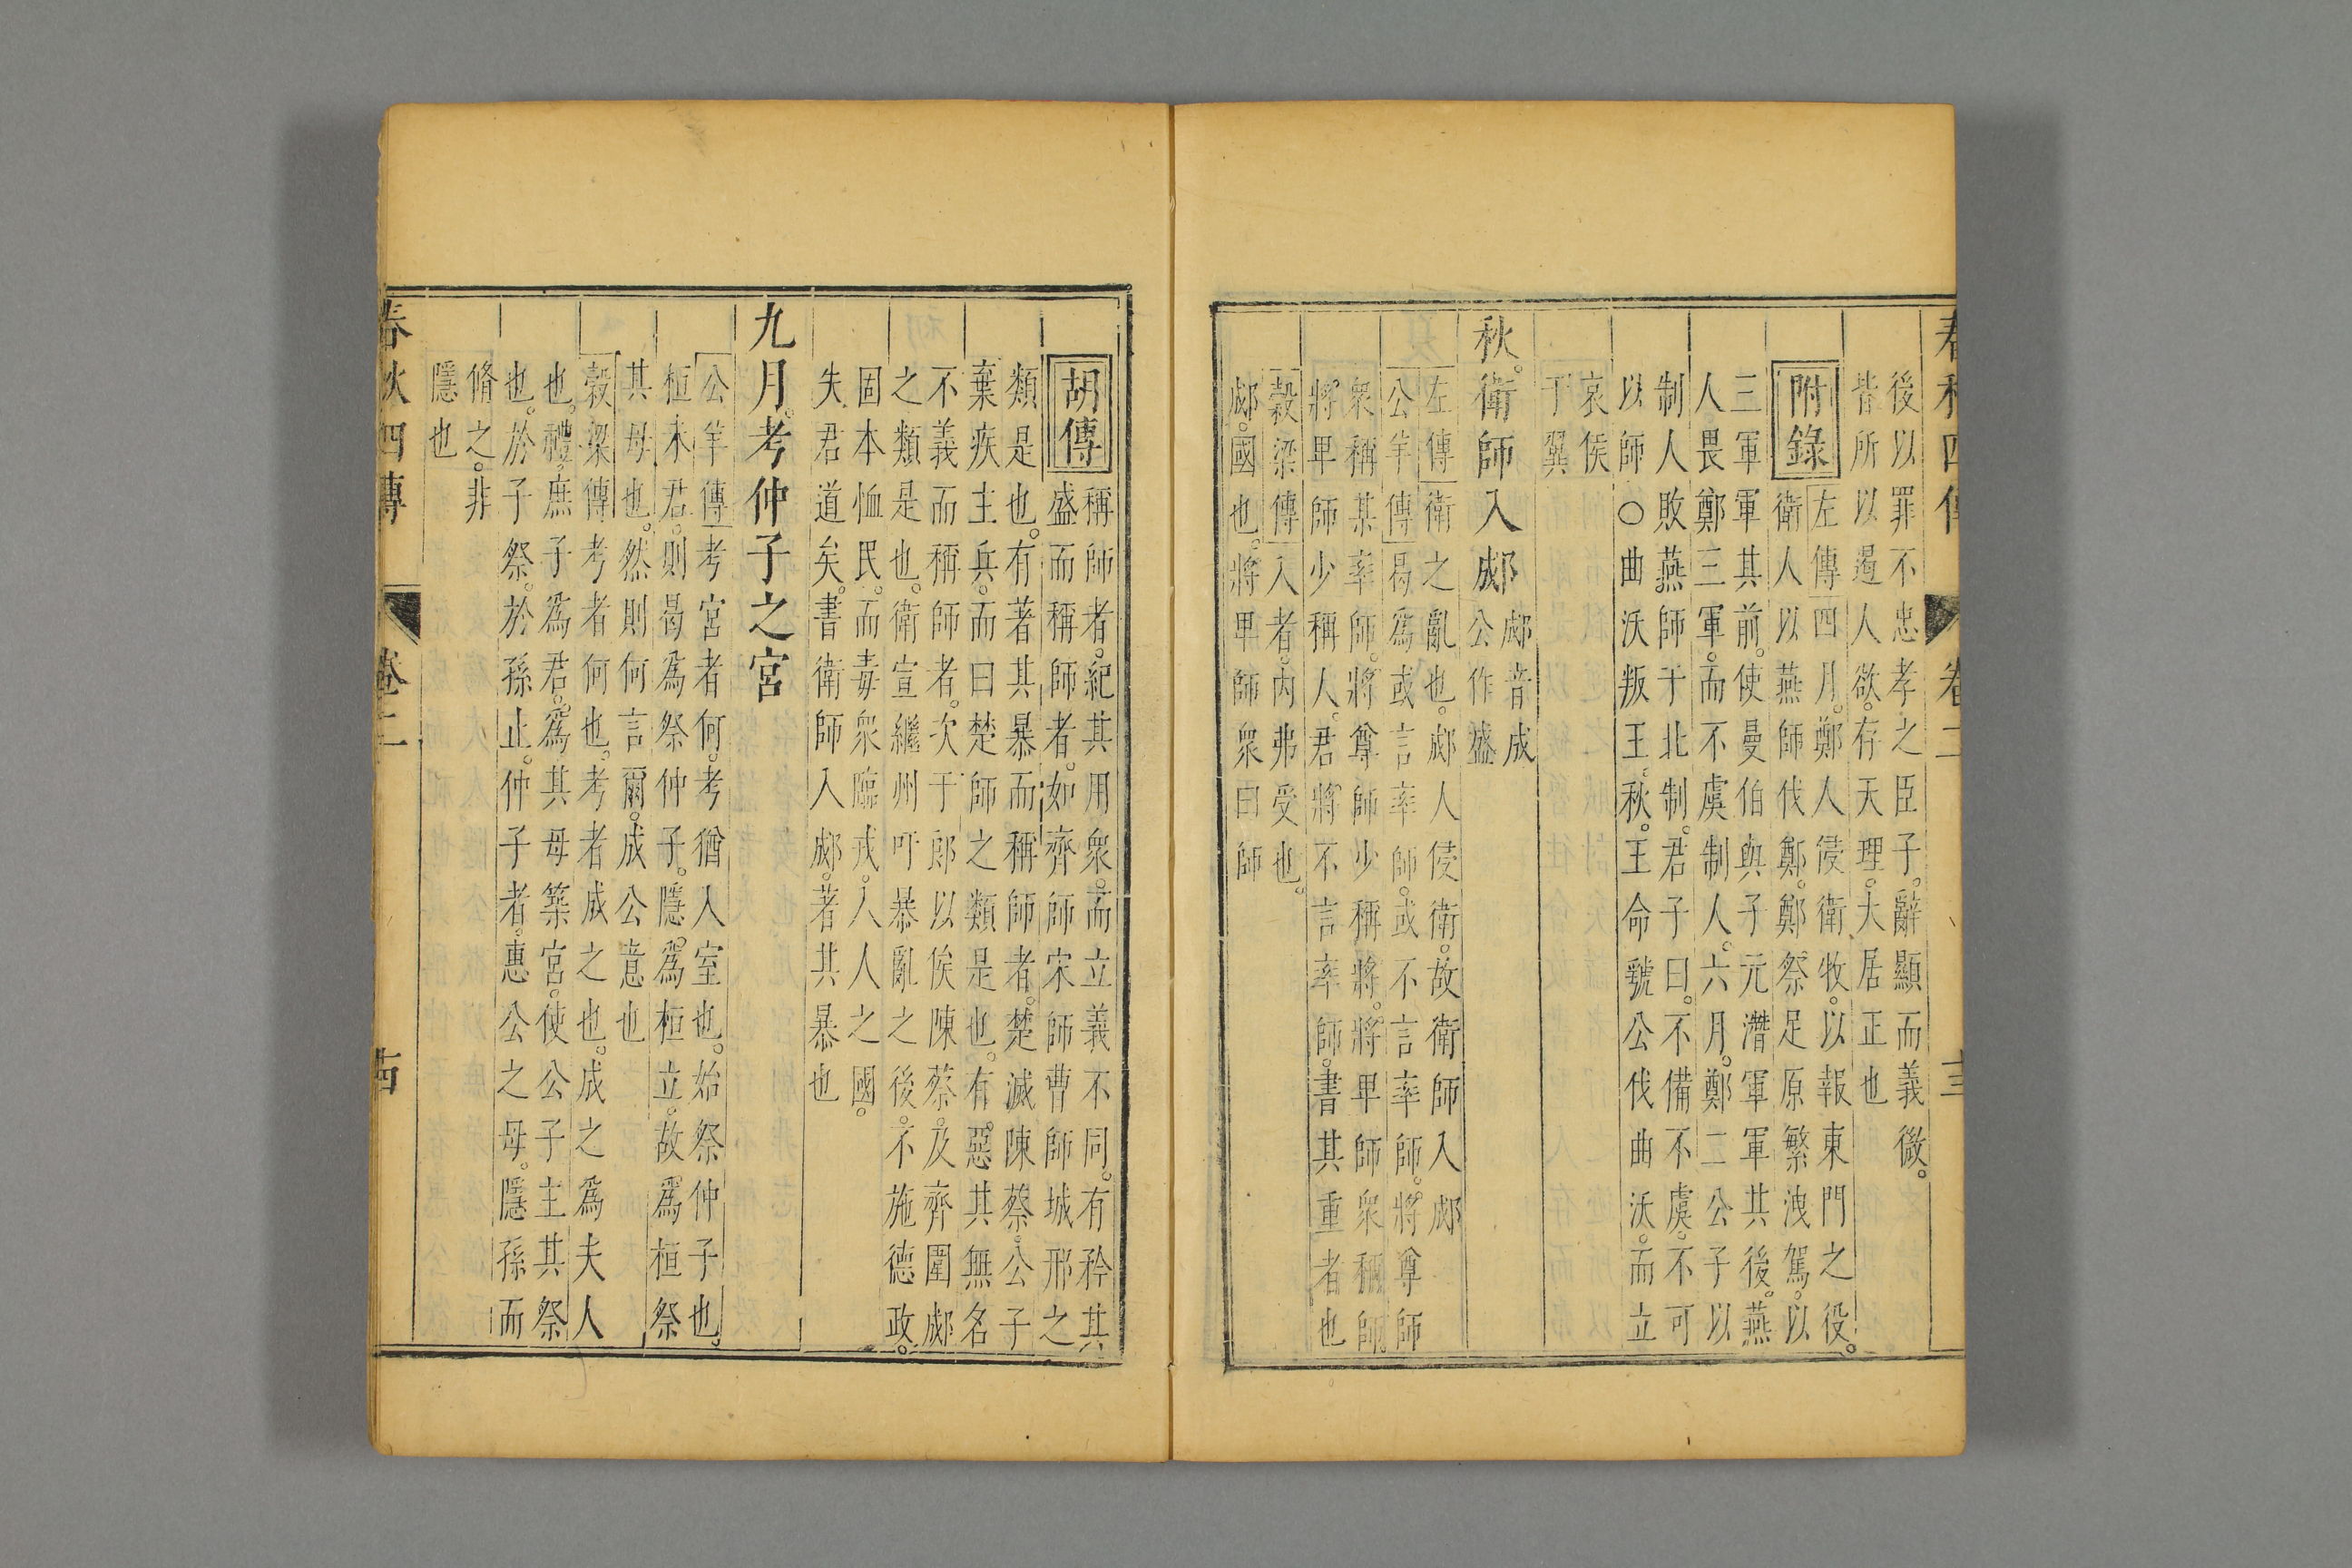 春秋四傳 卷二 十三
後以罪不忠孝之臣子。辭顯而義微。
皆所以遏人欲。存天理。大居正也
附錄 左傳 四月。鄭人侵衛牧。以報東門之役。
衛人以燕師伐鄭。鄭祭足原繁洩駕。以
三軍軍其前。使曼伯與子元潛軍軍其後。燕
人畏鄭三軍。而不虞制人。六月。鄭二公子以
制人敗燕師于北制。君子曰。不備不虞。不可
以師〇曲沃叛王。秋。王命虢公伐曲沃。而立
哀侯
于翼
秋。衛師入郕 郕音成
公作盛
左傳 衛之亂也。郕人侵衛。故衛師入郕
公羊傳 曷爲或言率師。或不言率師。將尊師
衆稱某率師。將尊師少稱將。將卑師衆稱師。
將卑師少稱人。君將不言率師。書其重者也
穀梁傳 入者。內弗受也。
郕。國也。將卑師衆曰師
胡傳 稱師者。紀其用衆。而立義不同。有矜其
盛而稱師者。如齊師宋師曹師城邢之
類是也。有著其暴而稱師者。楚滅陳蔡。公子
棄疾主兵。而曰楚師之類是也。有惡其無名
不義而稱師者。次于郎以俟陳蔡。及齊圍郕
之類是也。衛宣繼州吁暴亂之後。不施德政。
固本恤民。而毒衆臨戎。入人之國。
失君道矣。書衛師入郕。著其暴也
九月。考仲子之宮
公羊傳 考宮者何。考猶入室也。始祭仲子也。
桓未君。則曷爲祭仲子。隱爲桓立。故爲桓祭
其母也。然則何言爾。成公意也
穀梁傳 考者何也。考者成之也。成之爲夫人
也。禮。庶子爲君。爲其母築宮。使公子主其祭
也。於子祭。於孫止。仲子者。惠公之母。隱孫而
脩之。非
隱也
春秋四傳 卷二